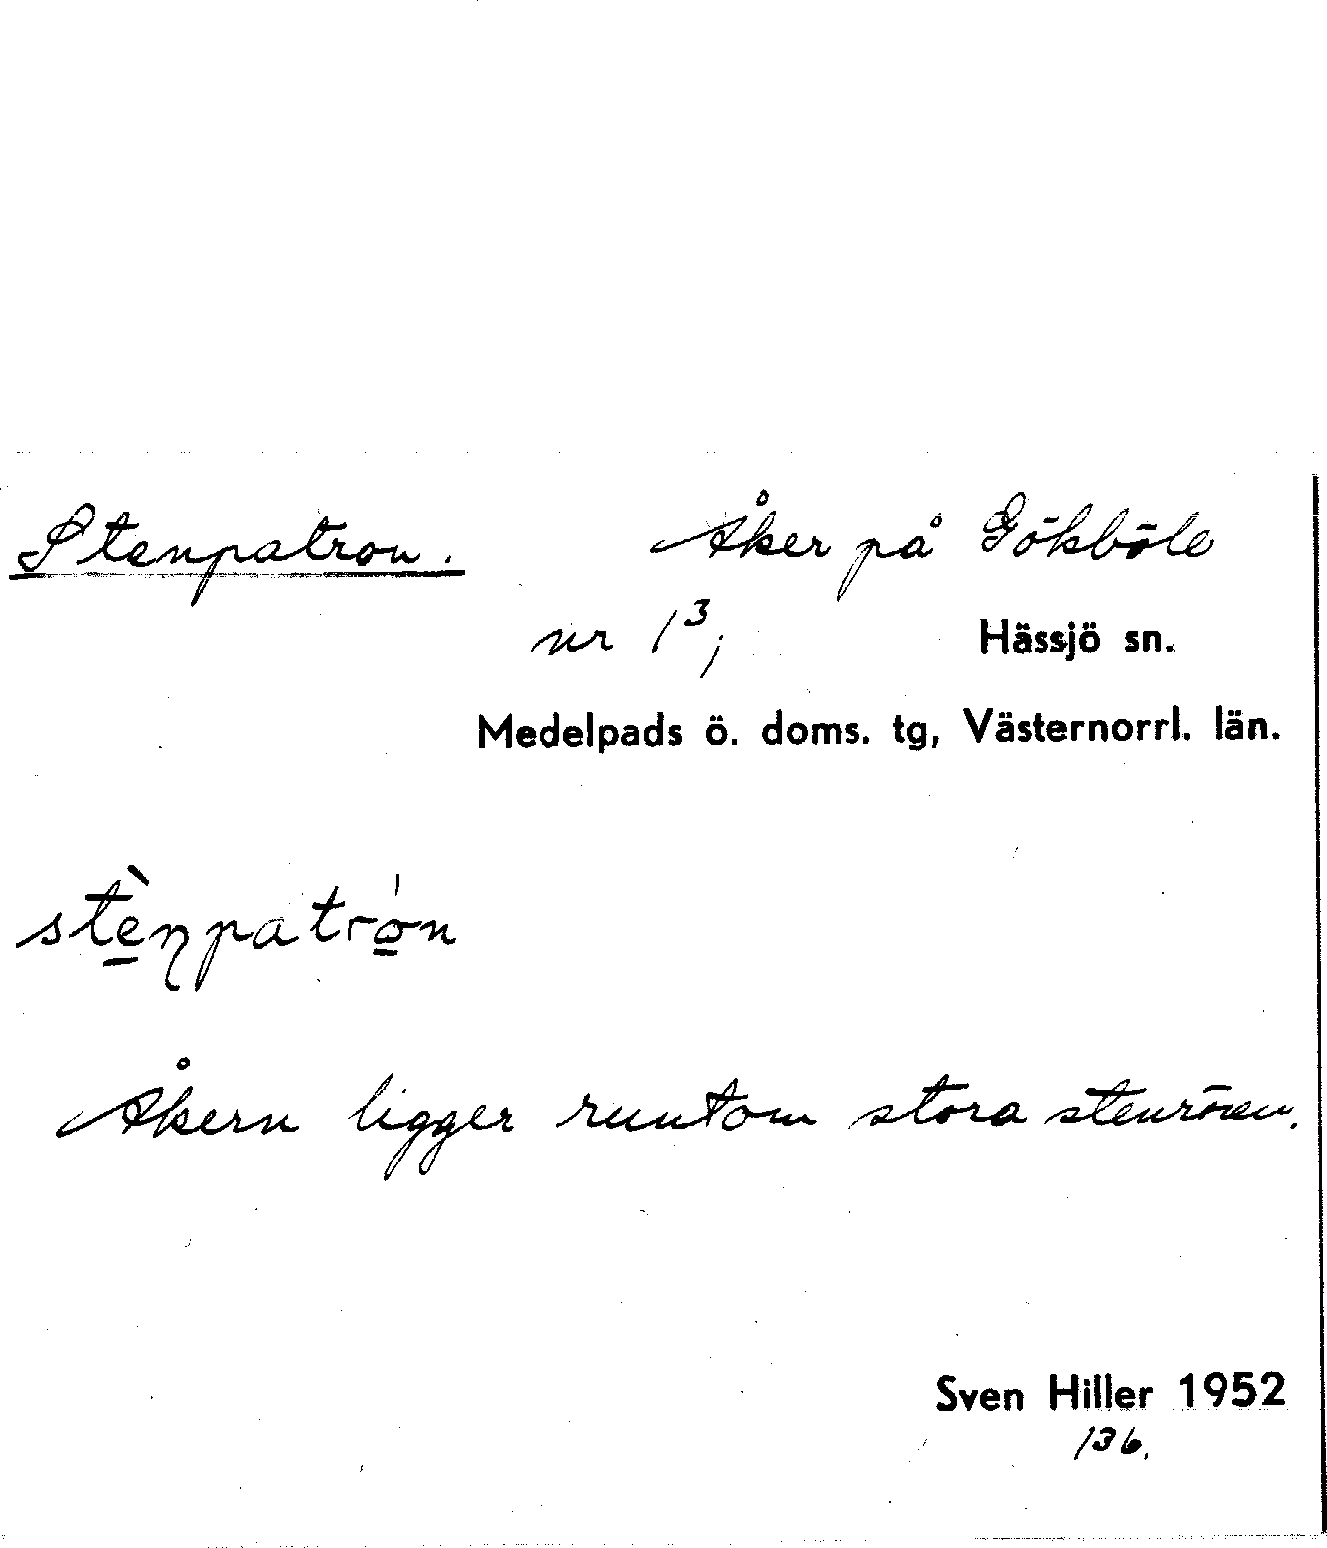 Stenpatron. Åker på Gökböle
nr 1³; Hässjö sn.
Medelpads ö. doms. tg, Västernorrl. län.
stèn̠patrón
Åkern ligger runtom stora stenrösen.
Sven Hiller 1952
136.